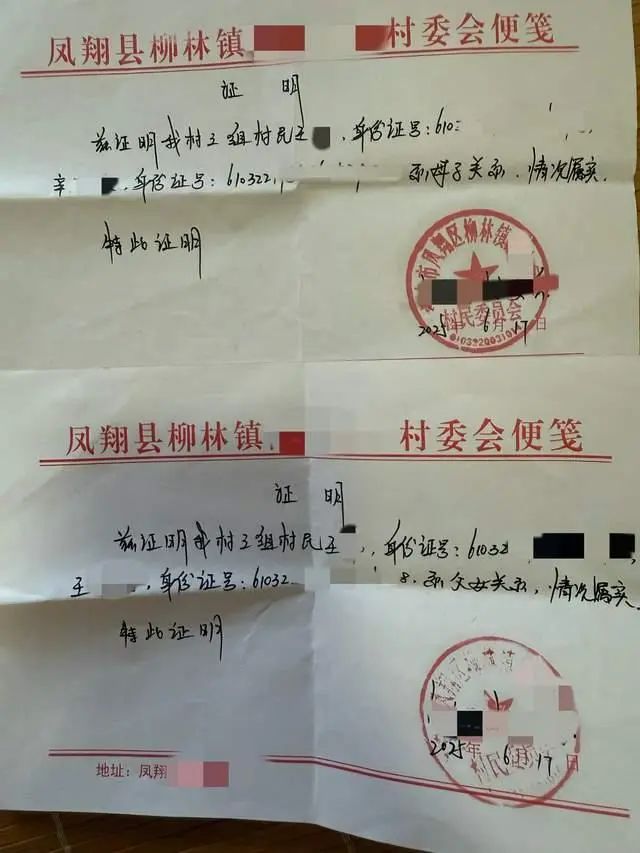 凤翔县柳林镇 村委会便笺
证 明
兹证明我村三组村民王 ,身份证号:610
辛 ,身份证号:610322, 系母子关系,情况属实。
特此证明
市凤翔区柳林镇
村民委员会
2025年6月17日
凤翔县柳林镇 村委会便笺
证 明
兹证明我村三组村民王 ,身份证号:61032
王 ,身份证号:61032 8.系父女关系,情况属实。
特此证明
村民
2025年6月17日
地址:凤翔